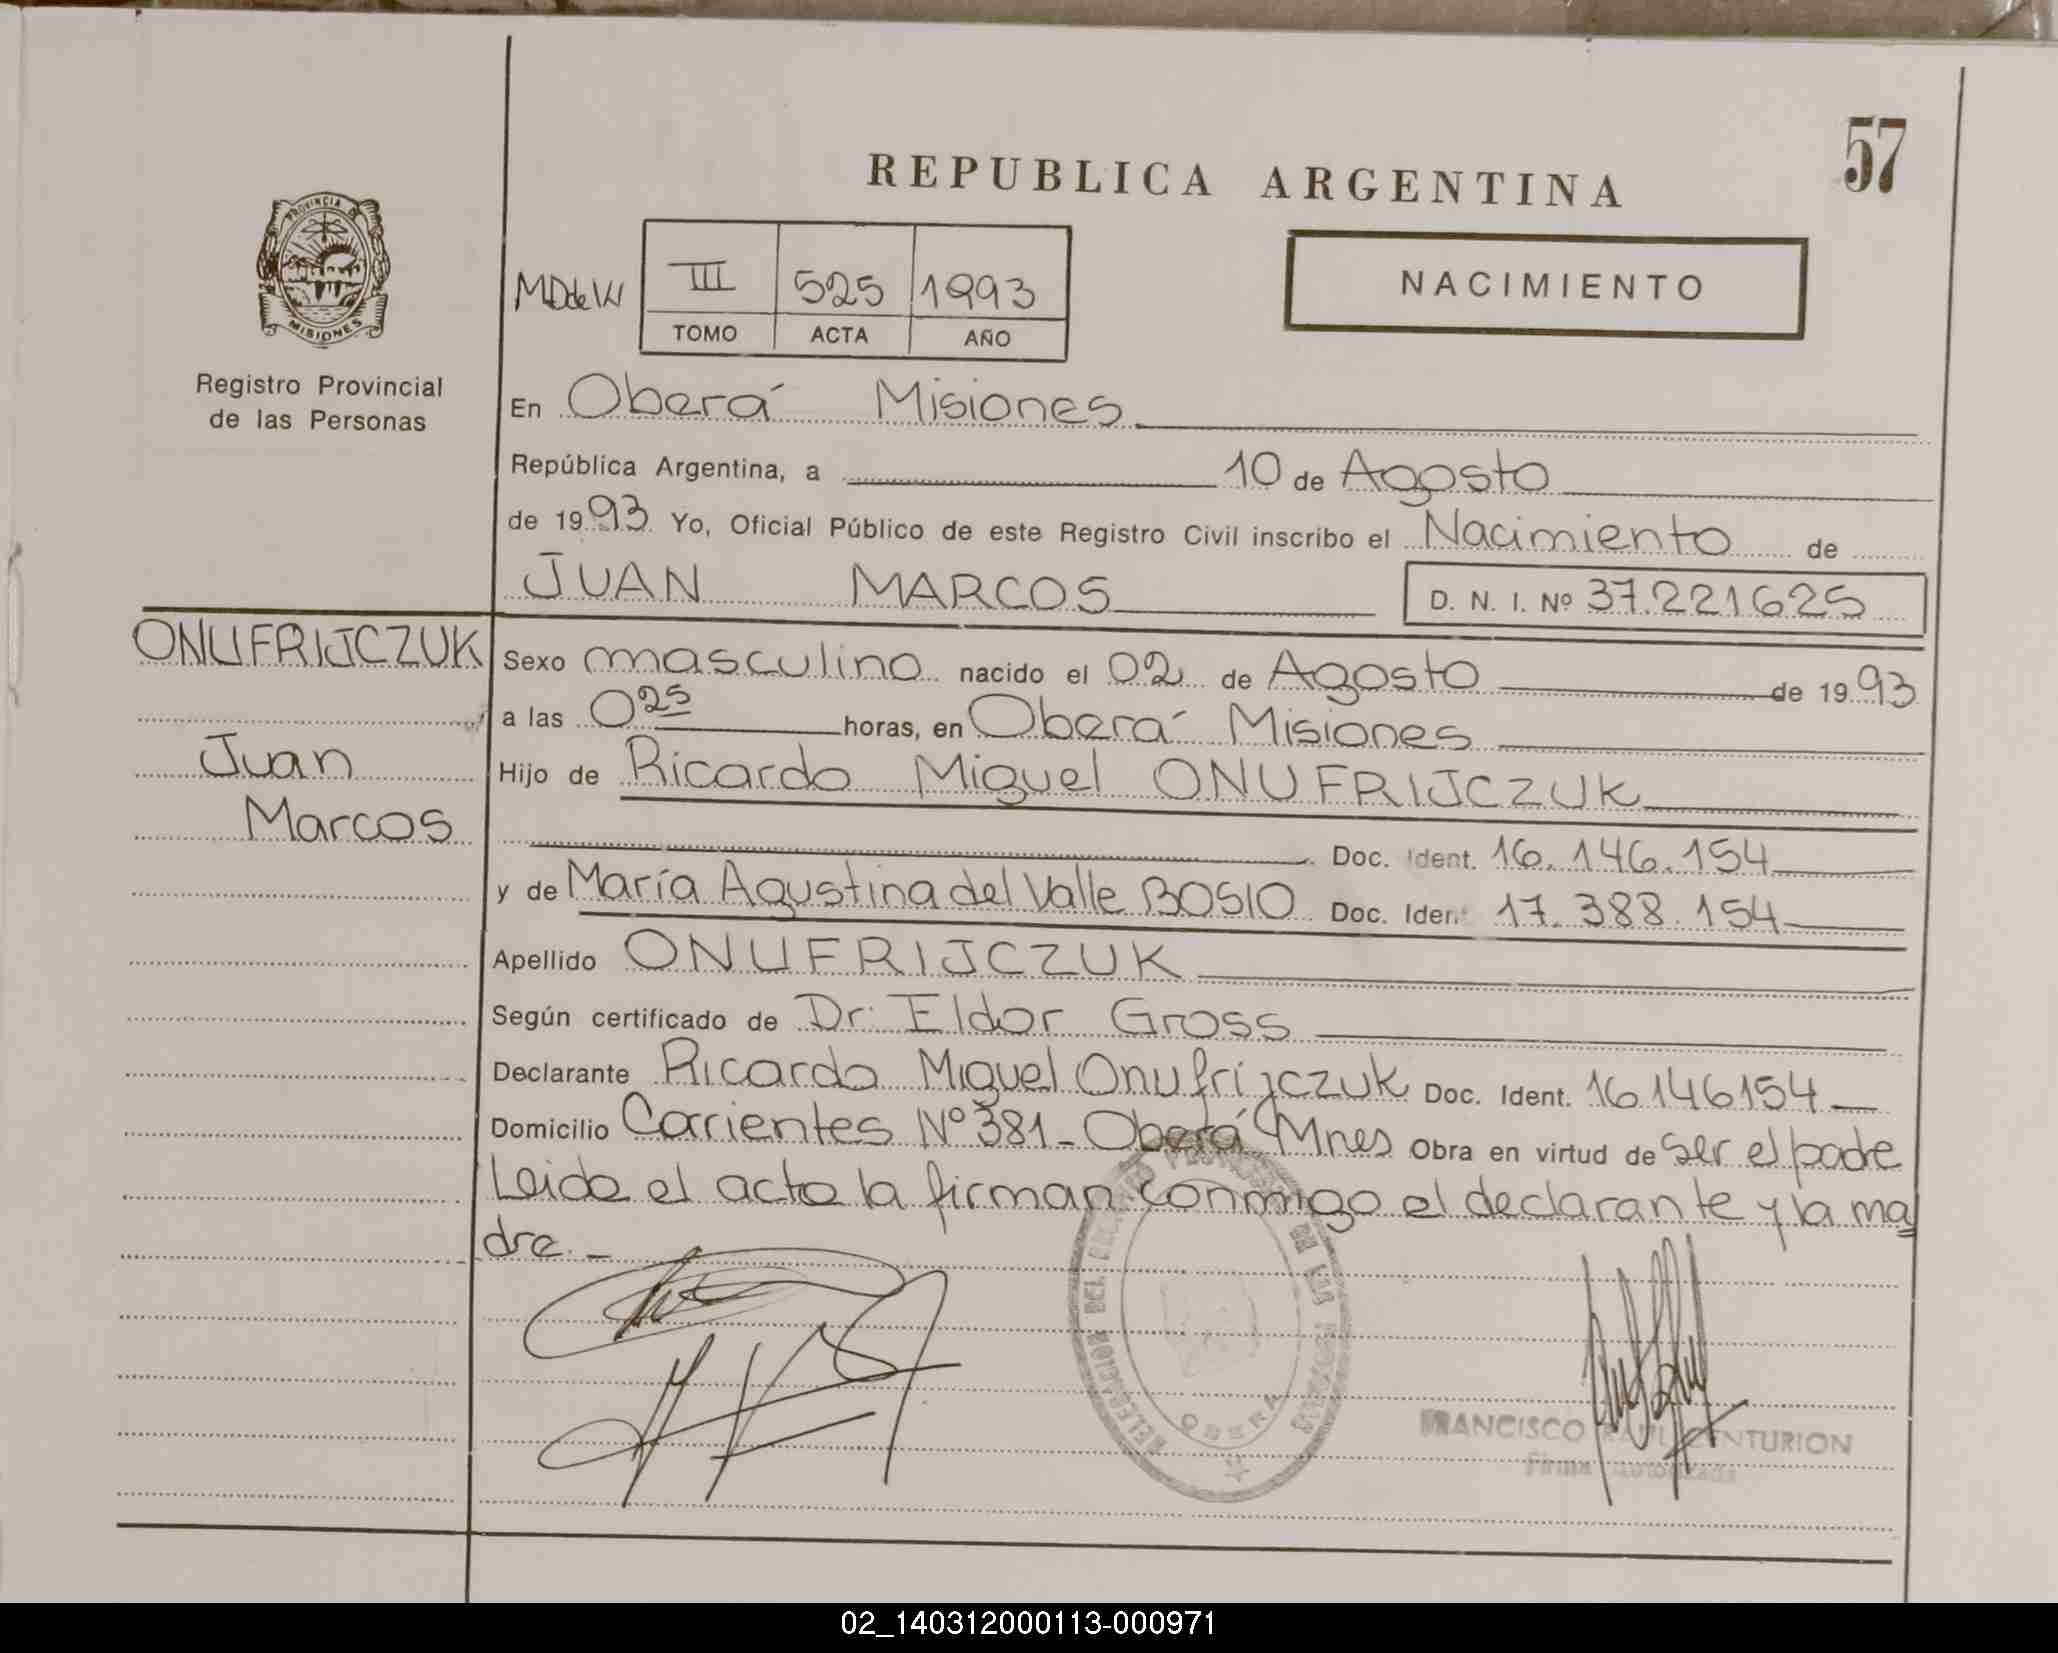 57
REPUBLICA ARGENTINA
PROVINCIA DE
MISIONES
Registro Provincial
de las Personas
MDdeW
III 525 1993
TOMO ACTA AÑO
NACIMIENTO
En Oberá Misiones
República Argentina, a 10 de Agosto
de 1993 Yo, Oficial Público de este Registro Civil inscribo el Nacimiento de
JUAN MARCOS D. N. I. Nº 37.221625
ONUFRIJCZUK
Juan
Marcos
Sexo masculino nacido el 02 de Agosto de 1993
a las 0 25 horas, en Oberá Misiones
Hijo de Ricardo Miguel ONUFRIJCZUK
Doc. Ident. 16.146.154
y de María Agustina del Valle BOSIO Doc. Ident 17.388.154
Apellido ONUFRIJCZUK
Según certificado de Dr. Eldor Gross
Declarante Ricardo Miguel Onufrijczuk Doc. Ident. 16146154
Domicilio Corrientes Nº 381 - Oberá Mnes Obra en virtud de ser el padre
Leida el acta la firman conmigo el declarante y la ma
dre. -
DELEGACION DEL REGISTRO PROVINCIAL DE LAS PERSONAS
OBERA
FRANCISCO RAUL CENTURION
Firma autorizada
02_140312000113-000971